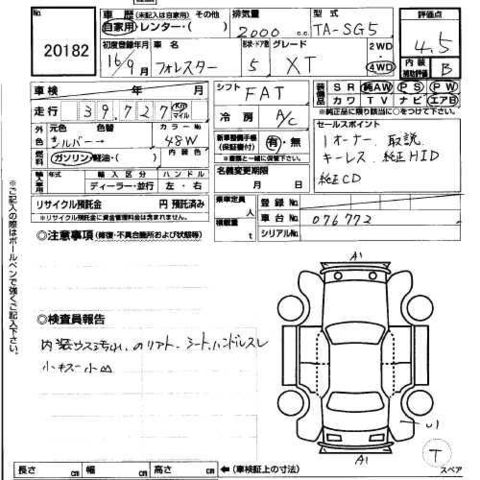 20182
車歴 (未記入は自家用) その他
自家用・レンター・( )
排気量
2000 cc
型式
TA-SG5
評価点
4.5
初度登録年月
16/9月
車名
フォレスター
ドア数
5
グレード
XT
2WD
4WD
内装
補助評価
B
車検 年 月
シフト
FAT
装備品
SR 純AW PS PW
カワ TV ナビ エアB
※純正品に限り該当に○をつけて下さい。
走行 39,727 km マイル
冷房
A/C
セールスポイント
1オーナー 取説
キーレス 純正HID
純正CD
外色
元色 色替
シルバー→
カラーNo
48W
新車整備手帳
(保証書付)
有・無
※書類と一緒にご提出下さい。
燃料
ガソリン・軽油・( )
内装色
名義変更期限
月 日
輸入車用
輸入区分 ハンドル
ディーラー・並行 左・右
リサイクル預託金 円 預託済み
※リサイクル預託金に資金管理料金は含まれますせん。
乗車定員 人
積載量 t
登録No.
車台No. 076772
シリアルNo.
◎注意事項 (修復・不具合箇所および状態等)
※ご記入の際はボールペンで強くご記入下さい。
◎検査員報告
内装ウス汚れ、
小キズ小凹
A1
U1
A1
T
スペア
長さ cm 幅 cm 高さ cm ←(車検証上の寸法)